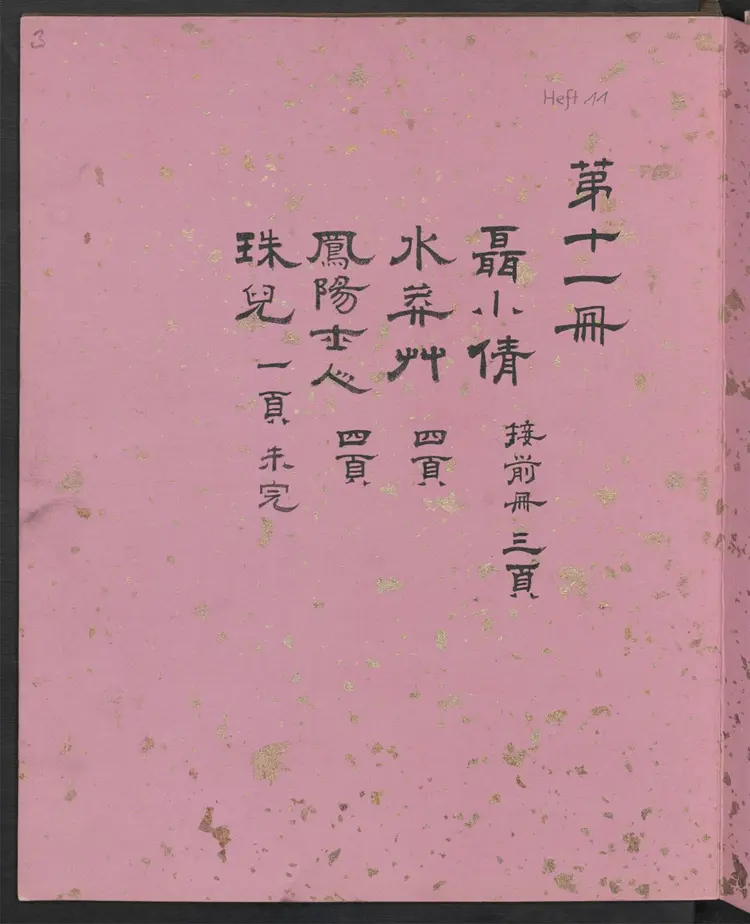 3
Heft 11
第十一冊
聶小倩 接前冊三頁
水莽艸 四頁
鳳陽士人 四頁
珠兒 一頁未完